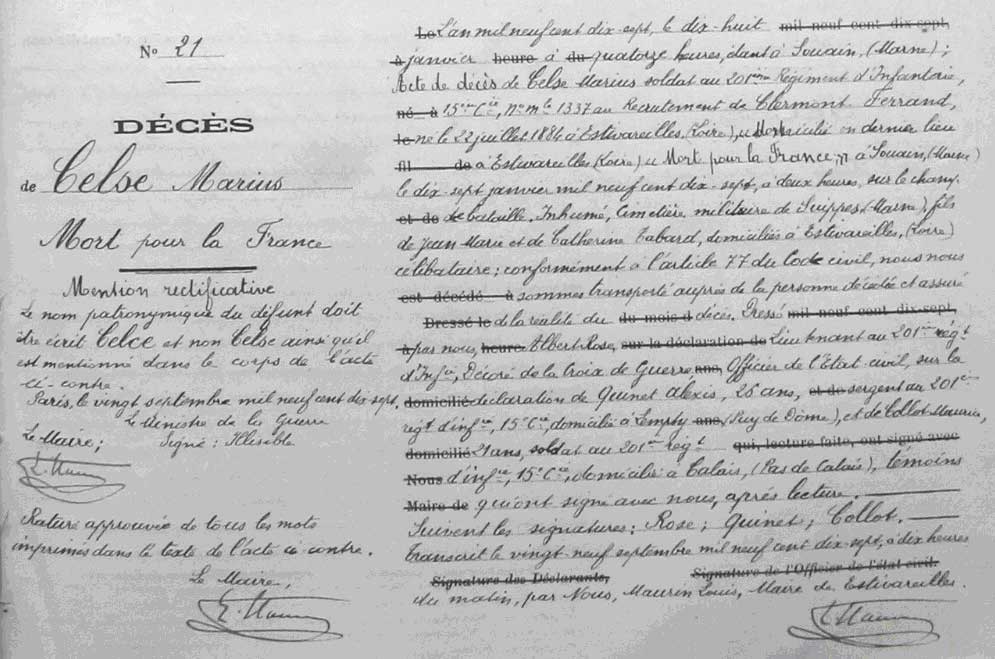 No 21
DÉCÈS
de Celse Marius
Mort pour la France
Mention rectificative
Le nom patronymique du défunt doit
être écrit Celce et non Celse ainsi qu'il
est mentionné dans le corps de l'acte
ci-contre.
Paris, le vingt septembre mil neuf cent dix-sept.
Le Ministre de la Guerre
Le Maire; Signé: Illisible
Rature approuvée de tous les mots
imprimés dans le texte de l'acte ci-contre.
Le Maire,
Le L'an mil neuf cent dix-sept, le dix-huit mil neuf cent dix-sept,
à janvier heure à du quatorze heures, étant à Souain, (Marne);
Acte de décès de Celse Marius soldat au 201ème Régiment d'Infanterie,
né à 15ème Cie, No mle 1337 au Recrutement de Clermont Ferrand,
le né le 22 juillet 1884 à Estivareilles, (Loire), domicilié en dernier lieu
fil de à Estivareilles (Loire) Mort pour la France, à Souain, (Marne)
le dix-sept janvier mil neuf cent dix-sept, à deux heures, sur le champ
et de de bataille. Inhumé, Cimetière militaire de Suippes (Marne), fils
de Jean Marie et de Catherine Tabard, domiciliés à Estivareilles, (Loire)
célibataire; conformément à l'article 77 du Code civil, nous nous
est décédé à sommes transporté auprès de la personne décédée et assuré
Dressé le de la réalité du du mois d décès. Dressé mil neuf cent dix-sept,
à pas nous, heure Albert Rose, sur la déclaration de Lieutenant au 201ème régt
d'Infie, Décoré de la Croix de Guerre, ans, Officier de l'Etat civil, sur la
domicilié déclaration de Quinet Alexis, 26 ans, et de sergent au 201ème
régt d'infie, 15e Cie, domicilié à ans, (Puy de Dôme), et de Collot Maurice,
domicilié 21 ans, soldat au 201ème régt qui, lecture faite, ont signé avec
Nous d'infie, 15e Cie, domicilié à Calais, (Pas de Calais), témoins
Maire de qui ont signé avec nous, après lecture.
Suivent les signatures: Rose; Quinet; Collot.
Transcrit le vingt-neuf septembre mil neuf cent dix-sept, à dix heures
Signature des Déclarants, Signature de l'Officier de l'état civil.
du matin, par Nous, Maurin Louis, Maire de Estivareilles.